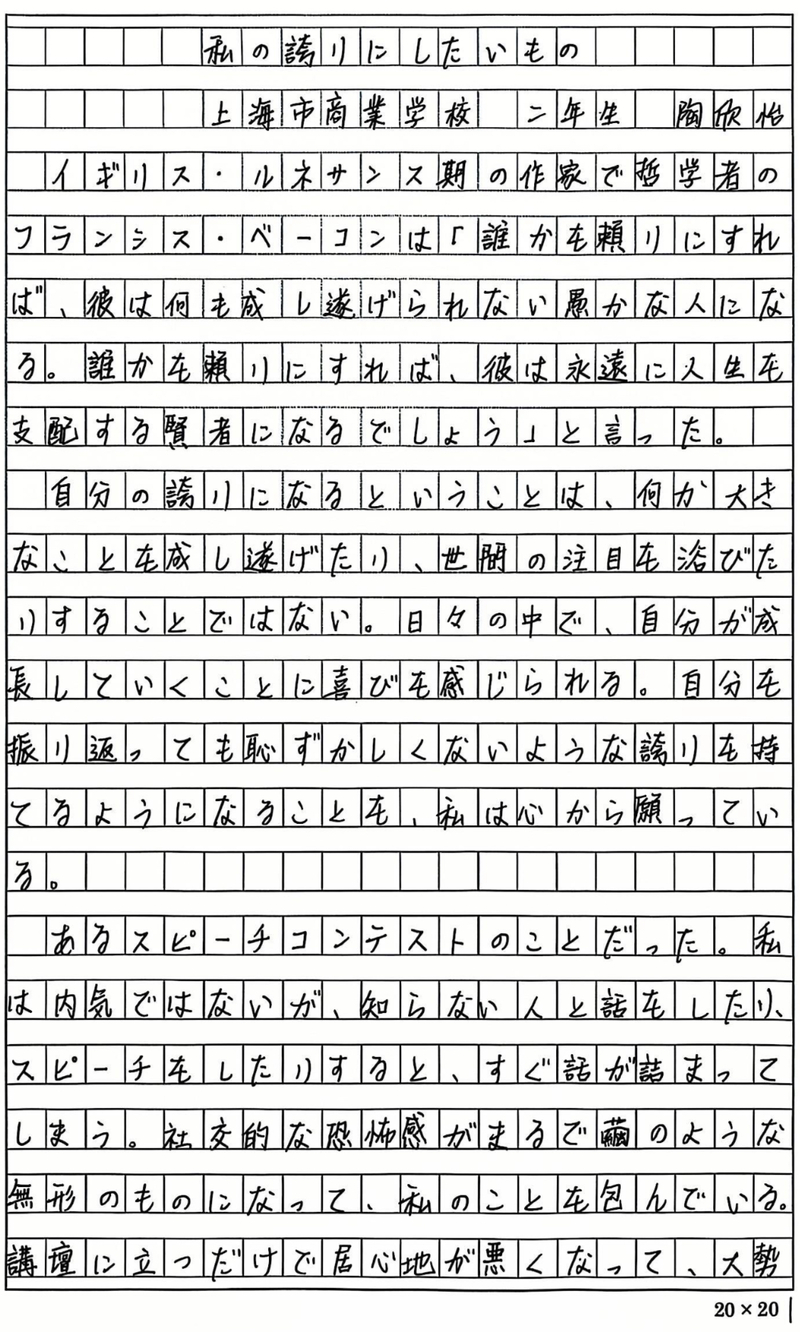 私の誇りにしたいもの
上海市商業学校 二年生 陶欣怡
イギリス・ルネサンス期の作家で哲学者の
フランシス・ベーコンは「誰かを頼りにすれ
ば、彼は何も成し遂げられない愚かな人にな
る。誰かを頼りにすれば、彼は永遠に人生を
支配する賢者になるでしょう」と言った。
自分の誇りになるということは、何か大き
なことを成し遂げたり、世間の注目を浴びた
りすることではない。日々の中で、自分が成
長していくことに喜びを感じられる。自分を
振り返っても恥ずかしくないような誇りを持
てるようになることを、私は心から願ってい
る。
あるスピーチコンテストのことだった。私
は内気ではないが、知らない人と話をしたり、
スピーチをしたりすると、すぐ話が詰まって
しまう。社交的な恐怖感がまるで繭のような
無形のものになって、私のことを包んでいる。
講壇に立つだけで居心地が悪くなって、大勢
20×20